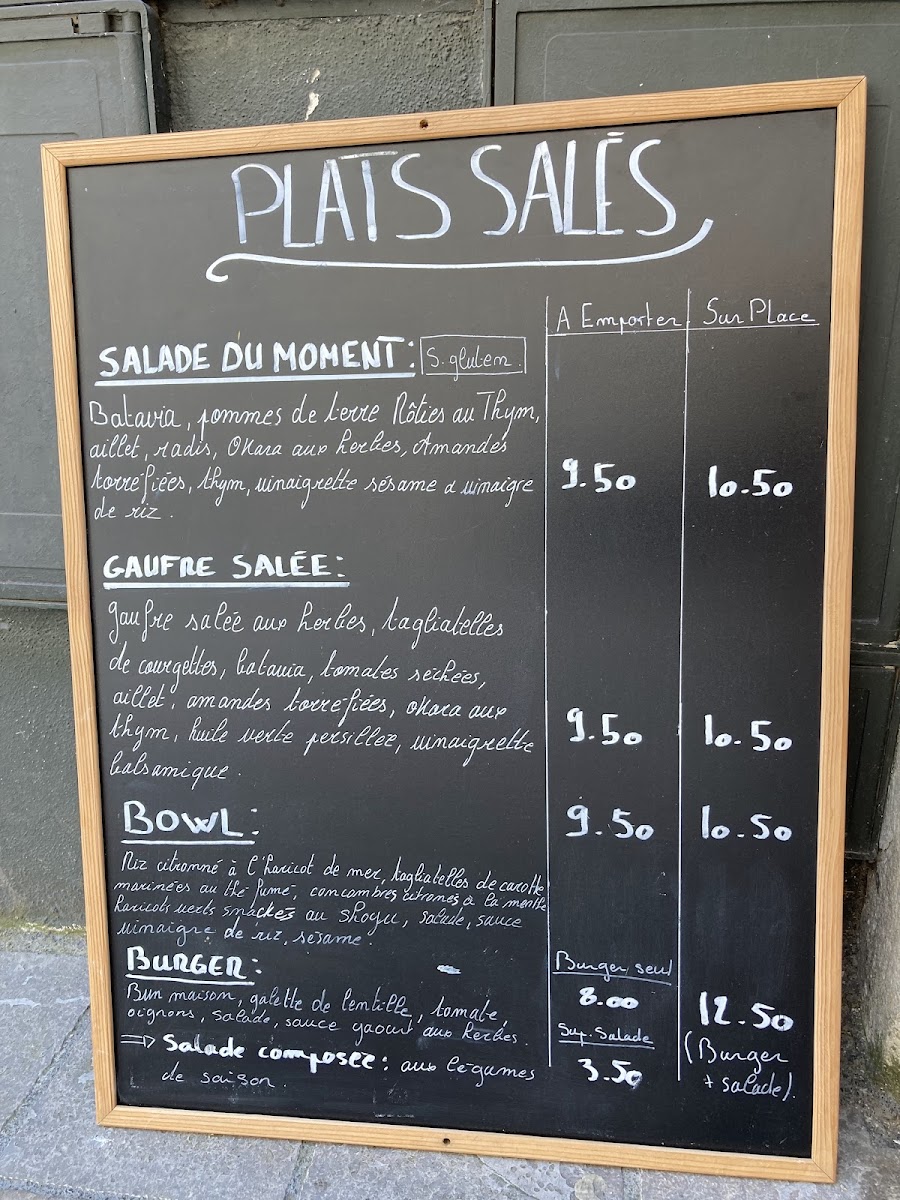 PLATS SALÉS
A Emporter Sur Place
SALADE DU MOMENT: S. gluten.
Batavia, pommes de terre Rôties au Thym,
aillet, radis, Okara aux herbes, Amandes
torréfiées, thym, vinaigrette sésame & vinaigre
de riz.
9.50 10.50
GAUFRE SALÉE:
gaufre salée aux herbes, tagliatelles
de courgettes, batavia, tomates séchées,
aillet, amandes torréfiées, okara aux
thym, huile verte persillez, vinaigrette
balsamique.
9.50 10.50
BOWL: 9.50 10.50
Riz citronné à l'haricot de mer, tagliatelles de carotte
marinées au thé fumé, concombres citronnés à la menthe
haricots verts snackés au shoyu, salade, sauce
vinaigre de riz, sésame.
BURGER: Burger seul
8.00 12.50
Bun maison, galette de lentille, tomate,
oignons, salade, sauce yaourt aux herbes.
Sup. Salade (Burger
⇒ Salade composée: aux légumes 3.50 + salade).
de saison.